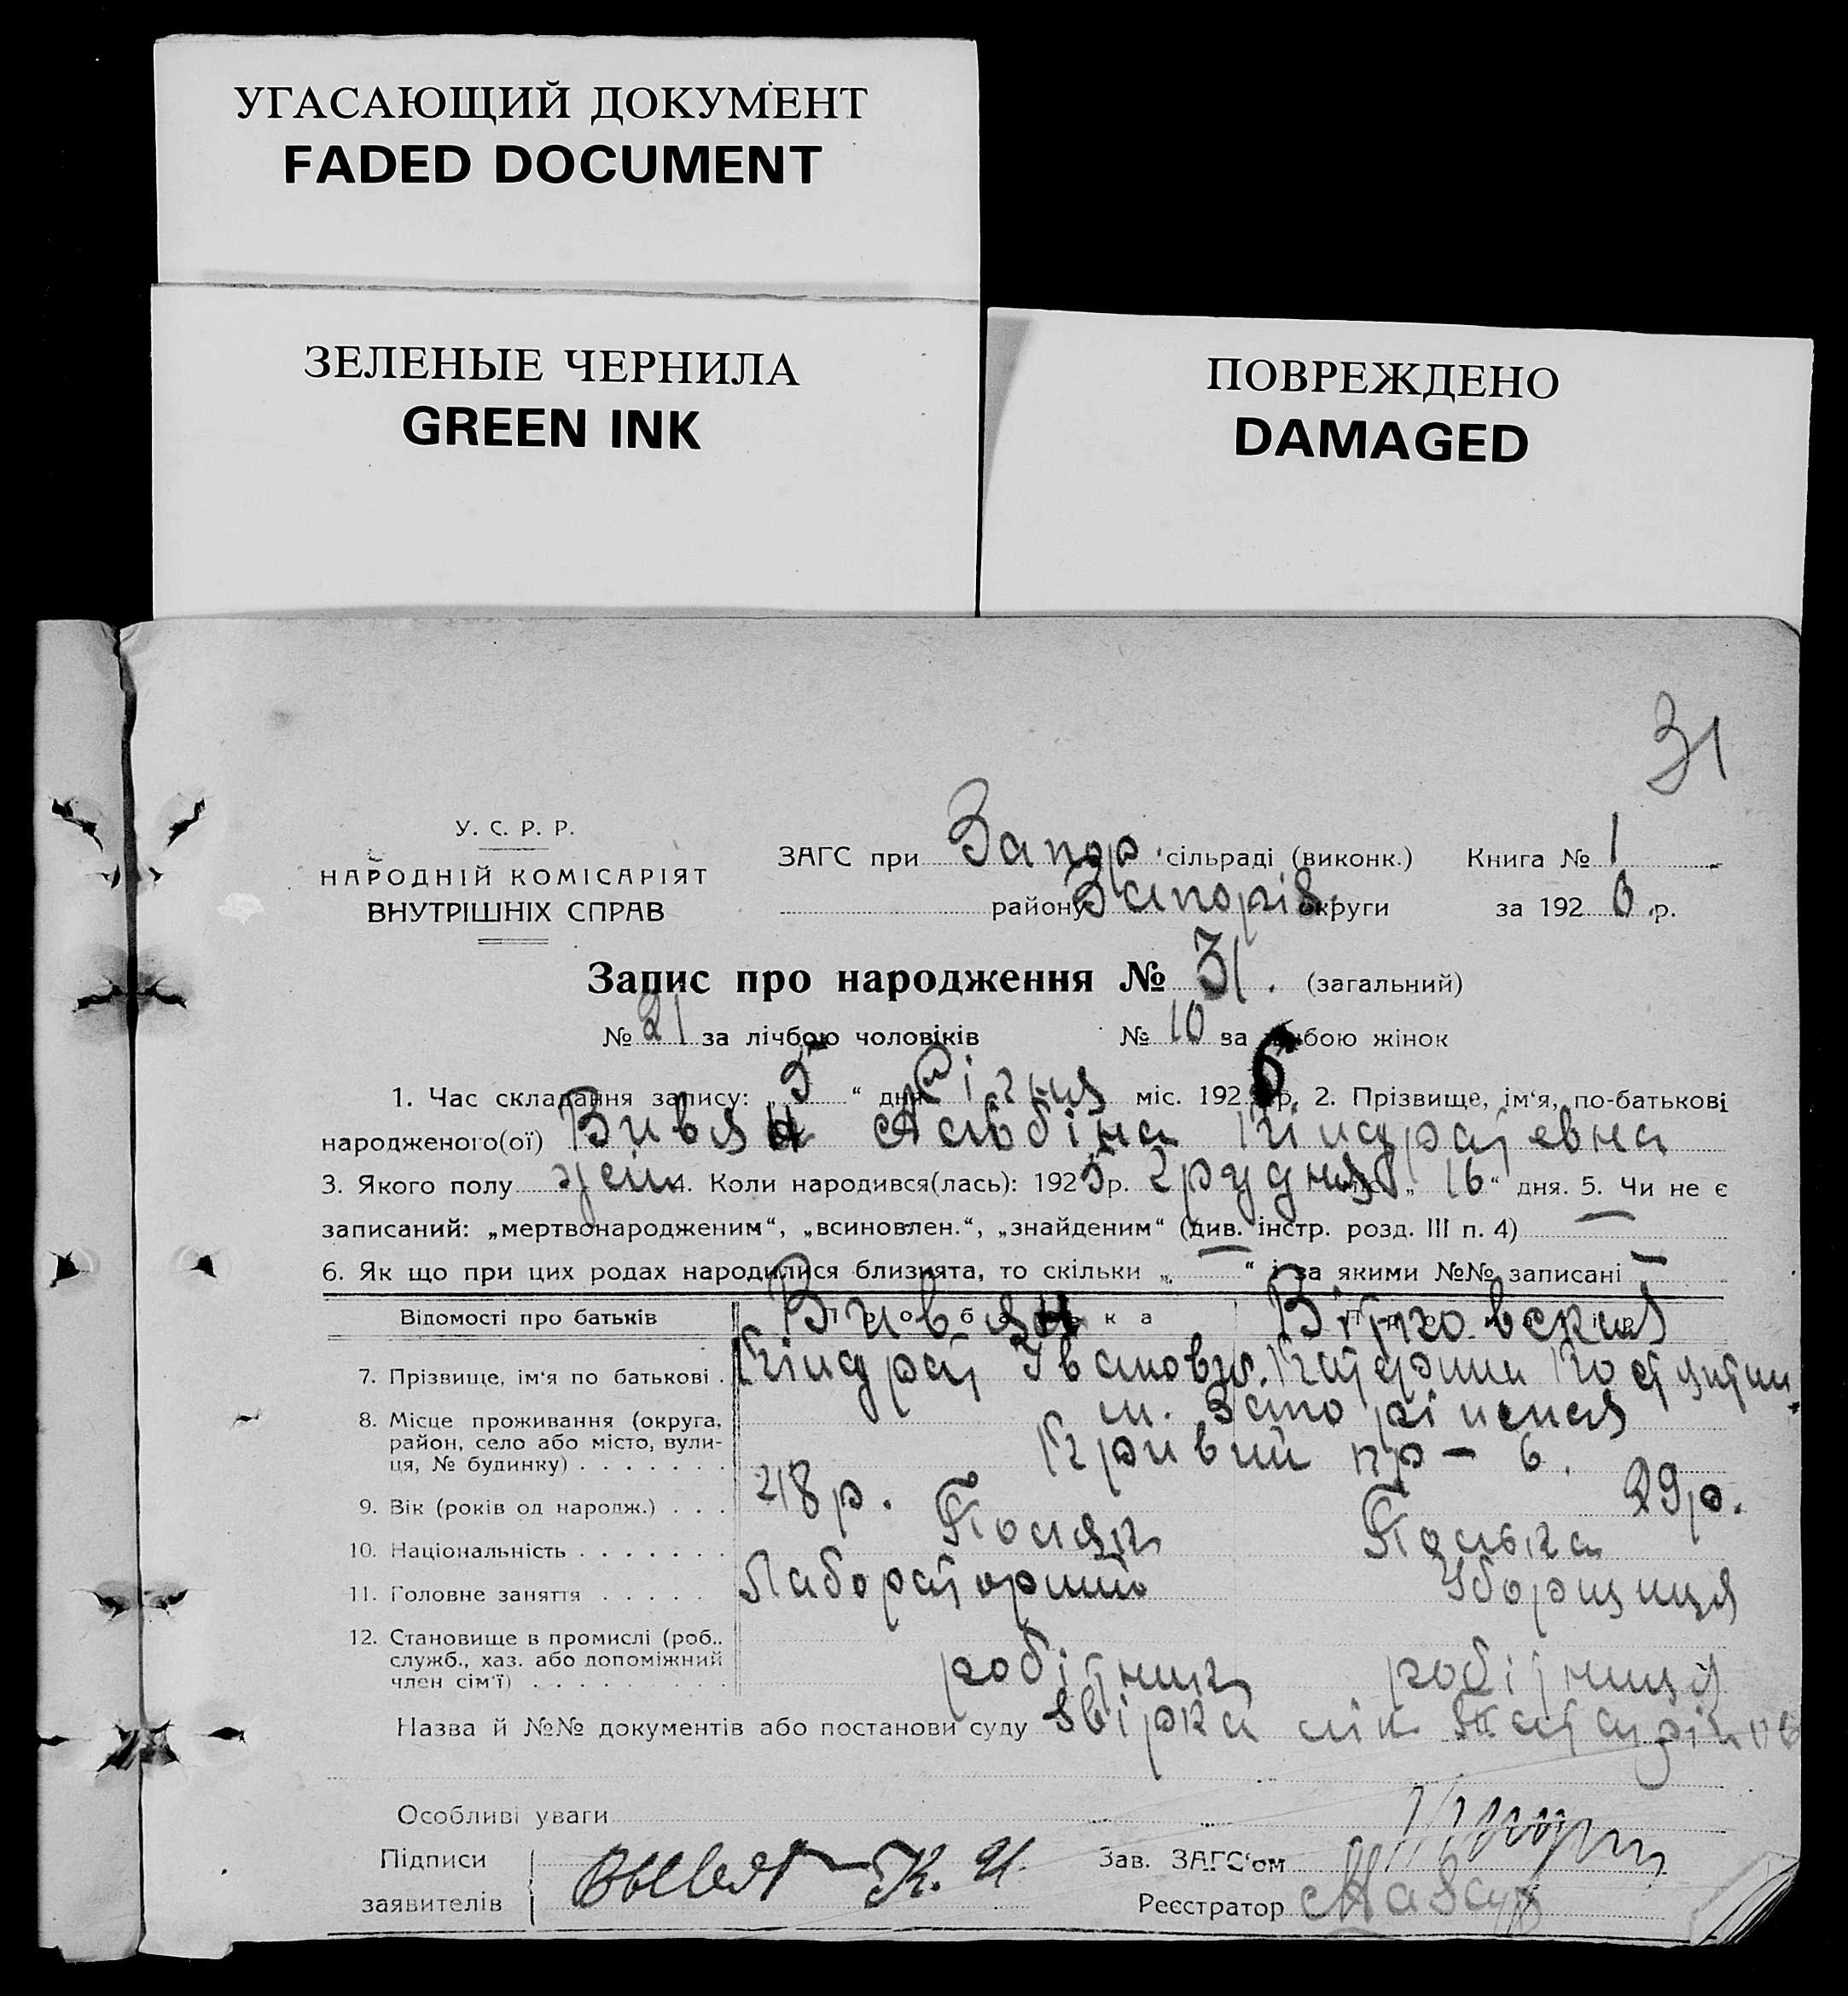 УГАСАЮЩИЙ ДОКУМЕНТ
FADED DOCUMENT
ЗЕЛЕНЫЕ ЧЕРНИЛА
GREEN INK
ПОВРЕЖДЕНО
DAMAGED
31
У. С. Р. Р.
НАРОДНІЙ КОМІСАРІЯТ
ВНУТРІШНІХ СПРАВ
ЗАГС при Запор. сільраді (виконк.) Книга № 1
району Запоріз. округи за 192 6 р.
Запис про народження № 31. (загальний)
№ 21 за лічбою чоловіків № 10 за лічбою жінок
1. Час складання запису: „ 5 “ дня Січня міс. 192 6 р. 2. Прізвище, ім‘я, по-батькові
народженого(ої) Вивян Альбіна Кіндратевна
3. Якого полу жін 4. Коли народився(лась): 192 5 р. грудня міс. „ 16 “ дня. 5. Чи не є
записаний: „мертвонародженим“, „всиновлен.“, „знайденим“ (див. інстр. розд. III п. 4) —
6. Як що при цих родах народилися близнята, то скільки „ — “ і за якими №№ записані —
Відомості про батьків Про батька
Вивян
7. Прізвище, ім‘я по батькові . Кіндрат Іванович. Катерина
8. Місце проживання (округа, район, село або місто, вулиця, № будинку) . . . . . . . м.
Кривий пр — 6.
9. Вік (років од народж.) . . . 28 р. 29 р.
10. Національність . . . . . . . Поляк Полька
11. Головне заняття . . . . . Уборщиця
12. Становище в промислі (роб., служб., хаз. або допоміжний член сім‘ї) . . . . . . . . . робітник робітниця
Назва й №№ документів або постанови суду
Особливі уваги
Підписи
заявителів К. И.
Зав. ЗАГС‘ом
Реєстратор Мазур